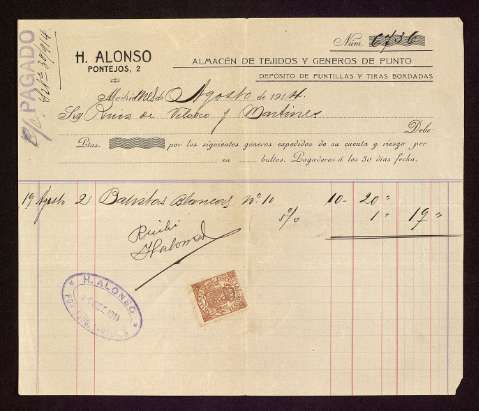 PAGADO
H. ALONSO
PONTEJOS, 2
Núm. 6736
ALMACÉN DE TEJIDOS Y GENEROS DE PUNTO
DEPÓSITO DE PUNTILLAS Y TIRAS BORDADAS
Madrid de Agosto de 1914.
Ruiz de Velasco y Martinez
Debe
Ptas. por los siguientes géneros expedidos de su cuenta y riesgo por
en bultos. Pagaderos á los 30 dias fecha.
19 Agosto 2 Batistas blancas nº 10 10- 20 "
5% 1 " 19 "
Recibí
H. Alonso
H. ALONSO